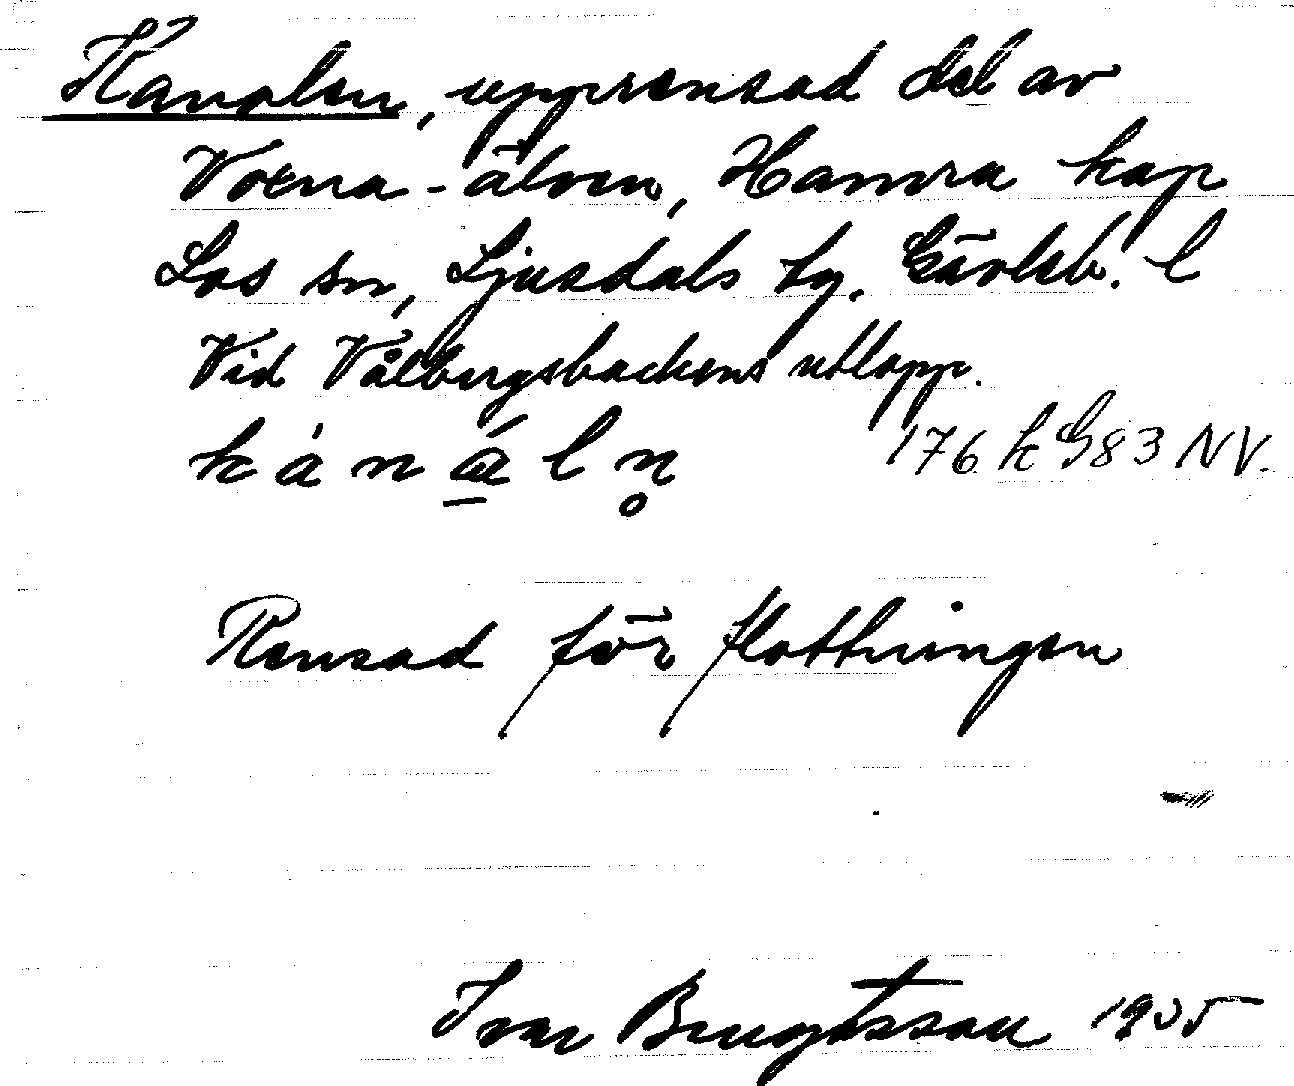 Kanalen, upprensad del av
Voxna-älven, Hamra kap
Los sn, Ljusdals tg. Gävleb. l
Vid Vålbergsbackens utlopp.
k à n á̱ l n̥
176 k G83 NV.
Rensad för flottningen
Ivar Bengtsson 1935